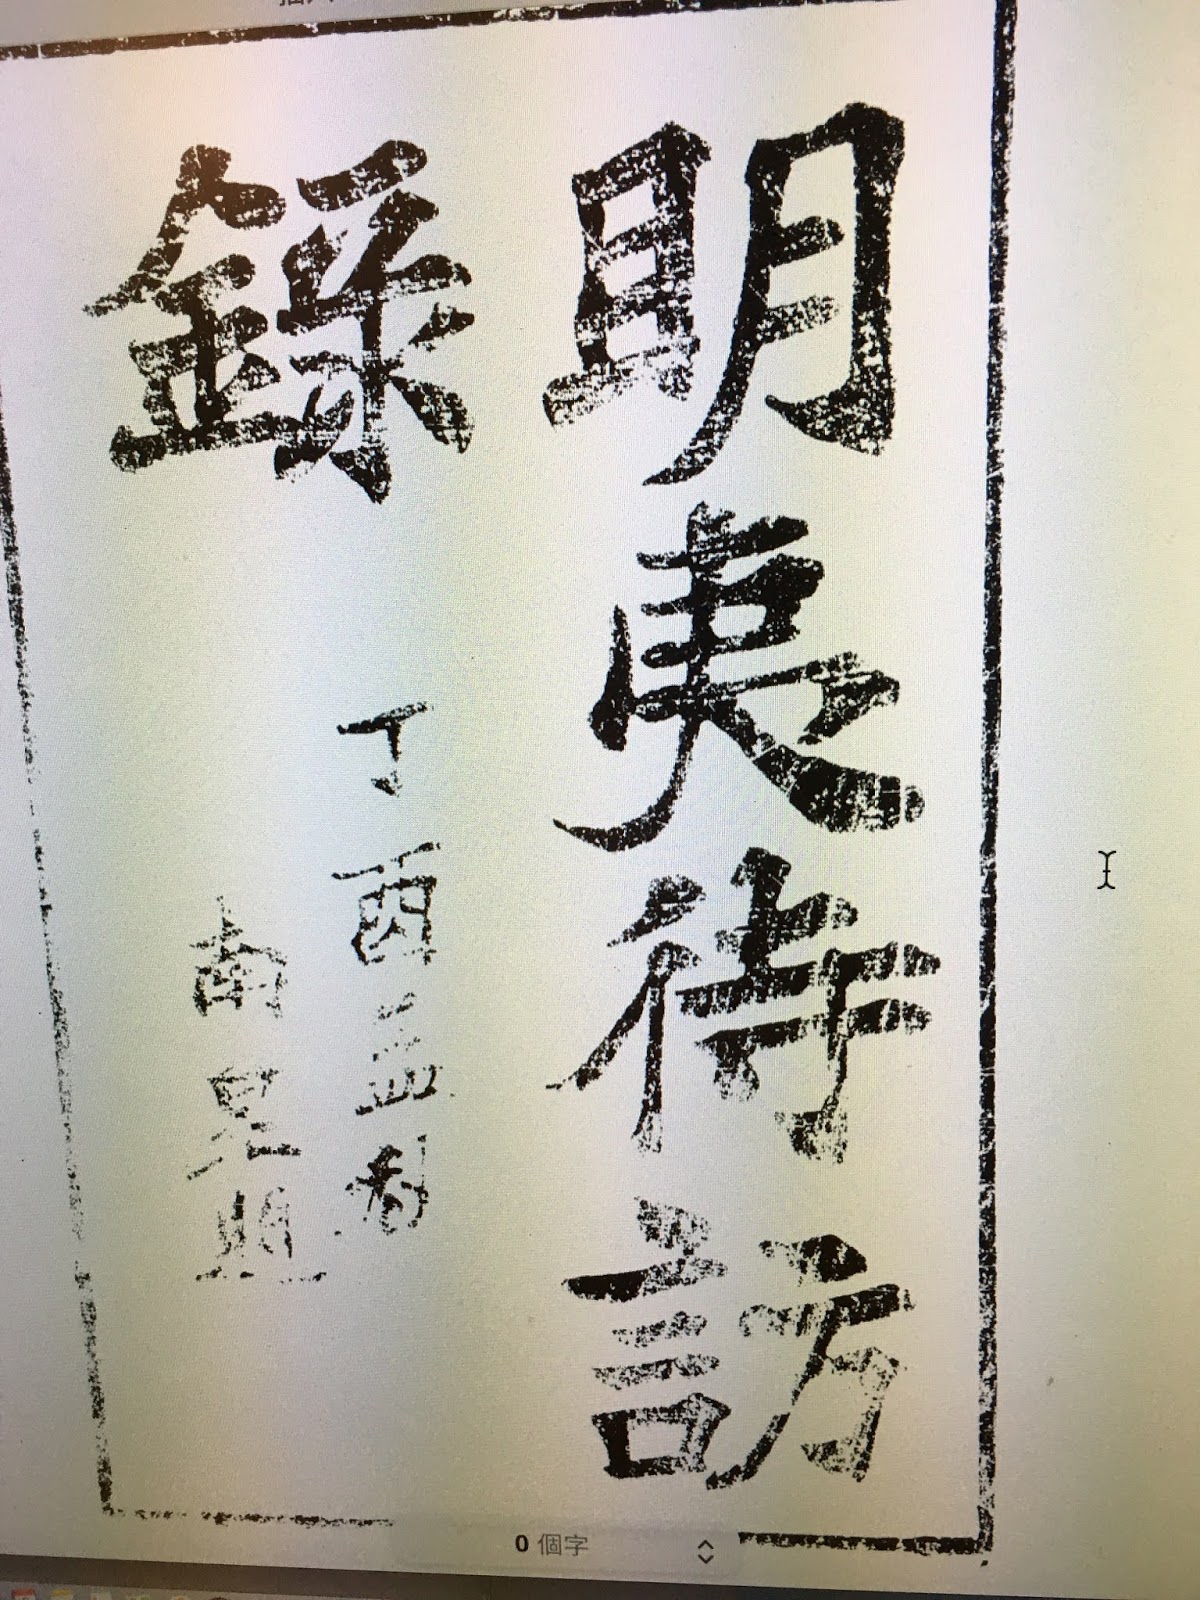 明夷待訪
錄
丁酉孟春
南
0 個字